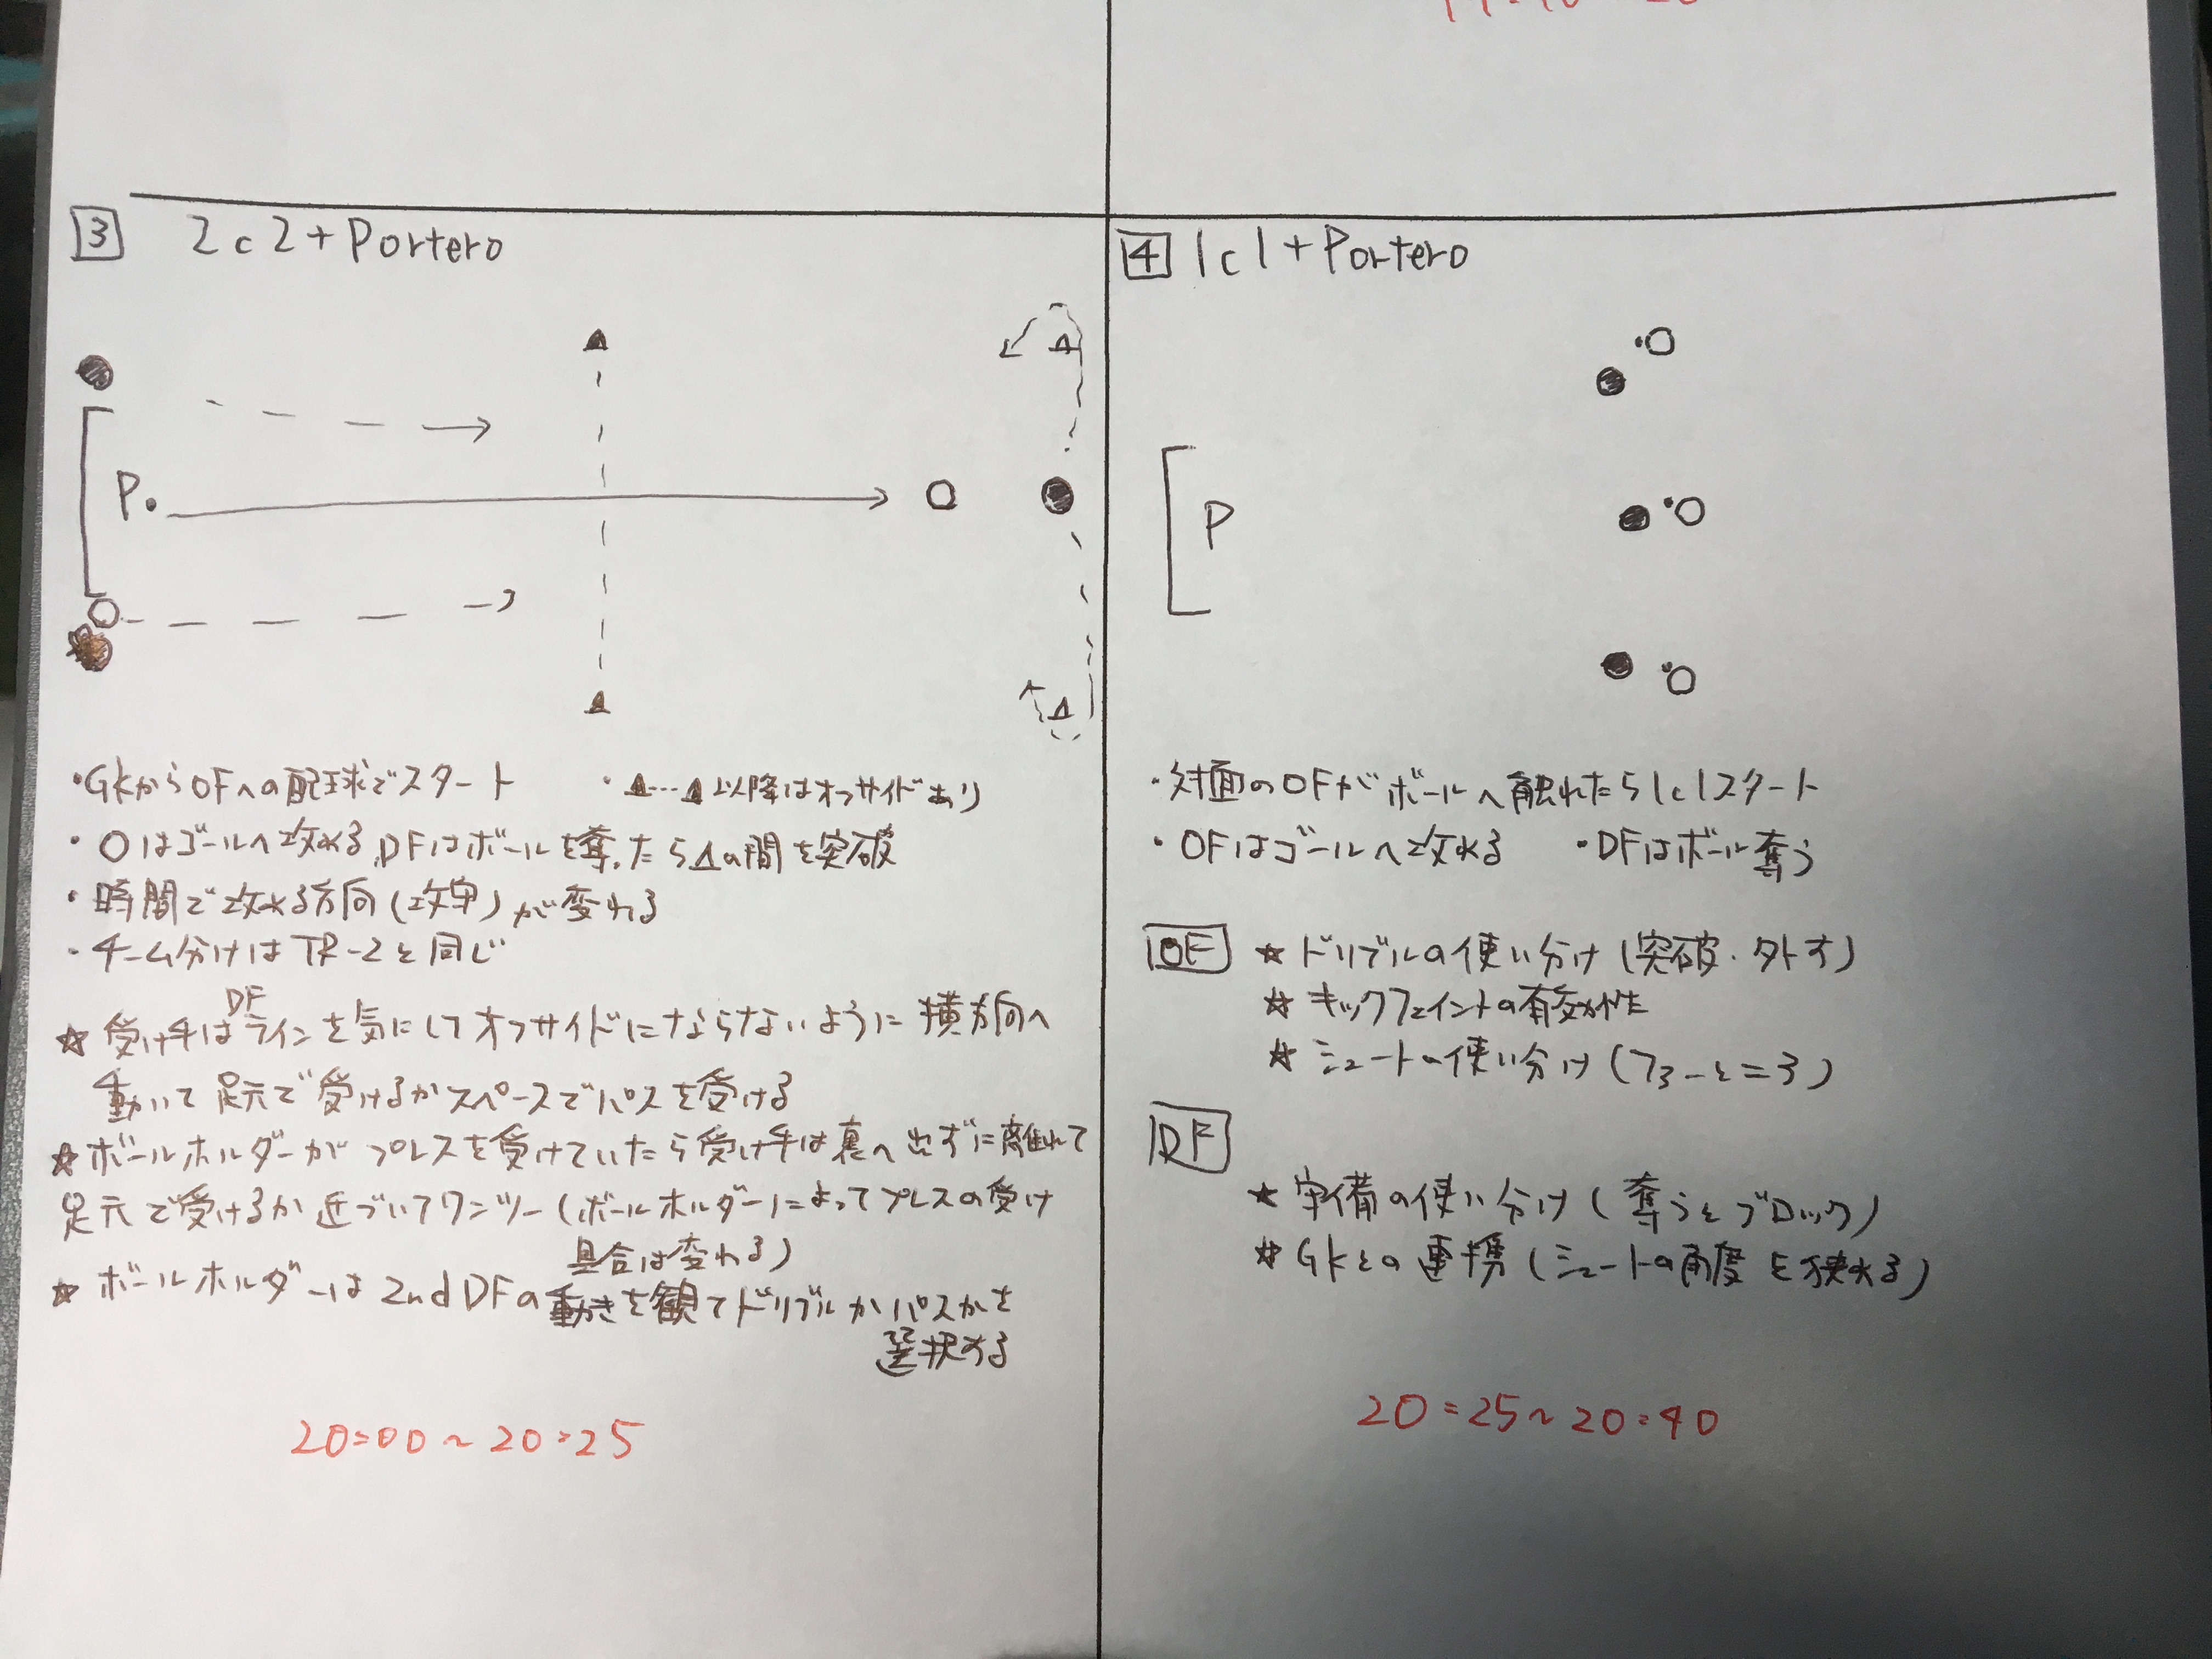 3 2c2+Portero
P.
・GKからOFへの配球でスタート ・▲…▲以降はオフサイドあり
・○はゴールへ攻める,DFはボールを奪ったら△の間を突破
・時間で攻める方向(攻守)が変わる
・チーム分けはTR-2と同じ
☆受け手はDFラインを気にしてオフサイドにならないように横方向へ
動いて足元で受けるかスペースでパスを受ける
☆ボールホルダーがプレスを受けていたら受け手は裏へ出ずに離れて
足元で受けるか近づいてワンツー(ボールホルダーによってプレスの受け
具合は変わる)
☆ボールホルダーは2nd DFの動きを観てドリブルかパスかを
選択する
20:00~20:25
4 1c1+Portero
P
・対面のOFがボールへ触れたら1c1スタート
・OFはゴールへ攻める ・DFはボール奪う
OF ☆ドリブルの使い分け(突破・外す)
☆キックフェイントの有効性
☆シュートの使い分け(ファーとニア)
DF
☆守備の使い分け(奪うとブロック)
☆GKとの連携(シュートの角度を狭める)
20:25~20:40